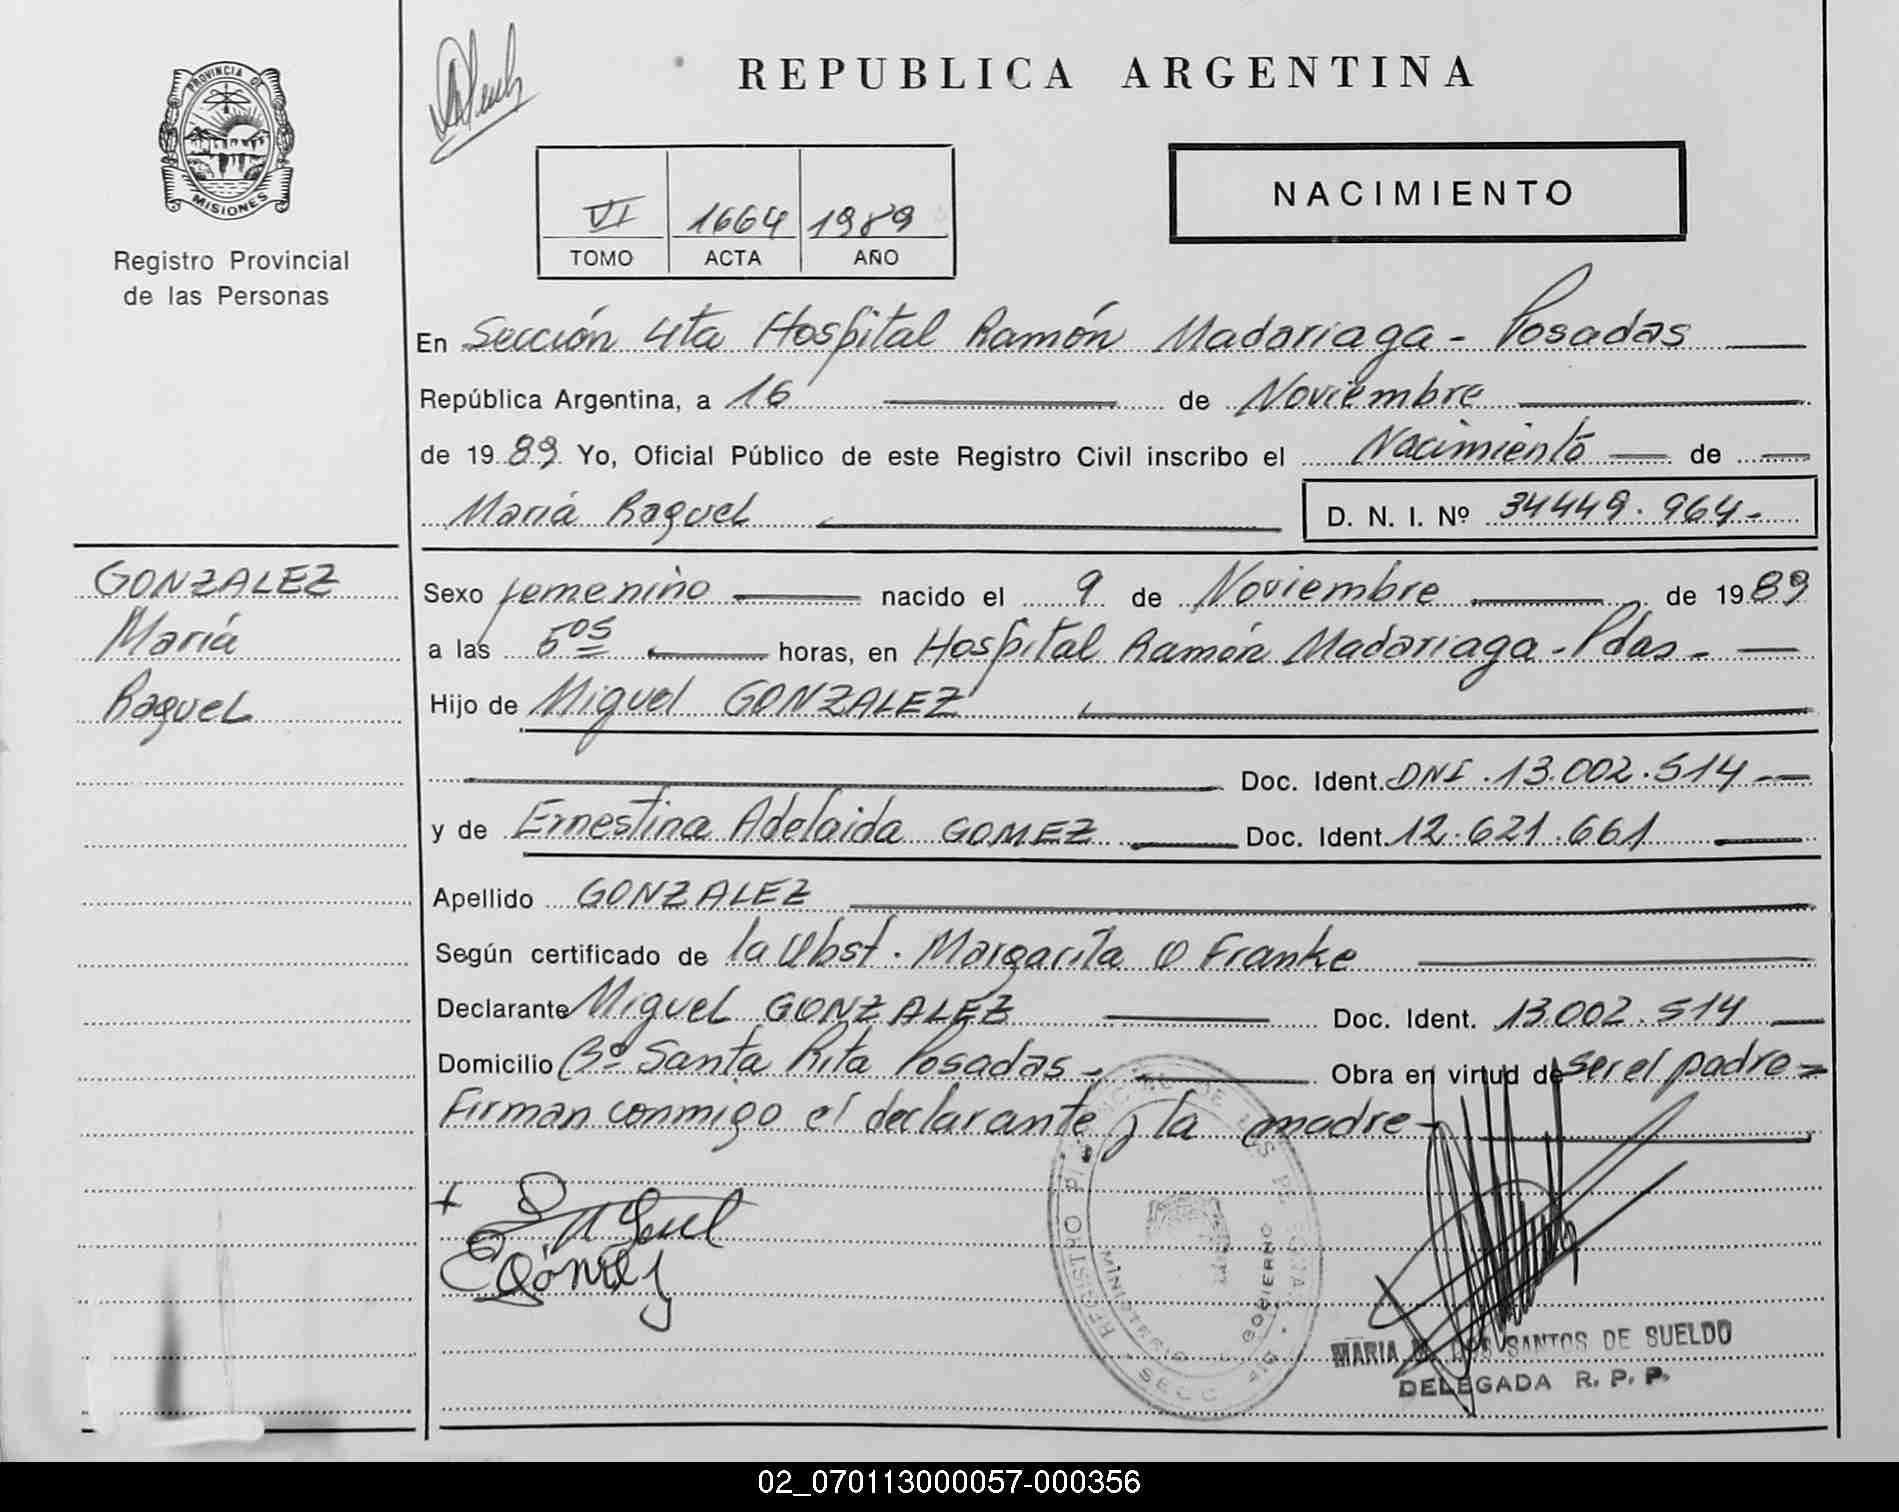 PROVINCIA DE
MISIONES
Registro Provincial
de las Personas
GONZALEZ
María
Raquel
REPUBLICA ARGENTINA
VI 1664 1989
TOMO ACTA AÑO
NACIMIENTO
En Sección 4ta Hospital Ramón Madariaga - Posadas
República Argentina, a 16 de Noviembre
de 1989 Yo, Oficial Público de este Registro Civil inscribo el Nacimiento de
María Raquel D. N. I. Nº 34449.964-
Sexo femenino nacido el 9 de Noviembre de 1989
a las 5 05 horas, en Hospital Ramón Madariaga - Pdas -
Hijo de Miguel GONZALEZ
Doc. Ident. DNI. 13.002.514
y de Ernestina Adelaida GOMEZ Doc. Ident. 12.621.661
Apellido GONZALEZ
Según certificado de la Obst. Margarita O Franke
Declarante Miguel GONZALEZ Doc. Ident. 13.002.514
Domicilio Bº Santa Rita Posadas - Obra en virtud de ser el padre =
Firman conmigo el declarante y la madre -
E Gómez
REGISTRO PROVINCIAL DE LAS PERSONAS
MINISTERIO GOBIERNO
SECC. 4ta
MARIA DOS SANTOS DE SUELDO
DELEGADA R. P. P.
02_070113000057-000356